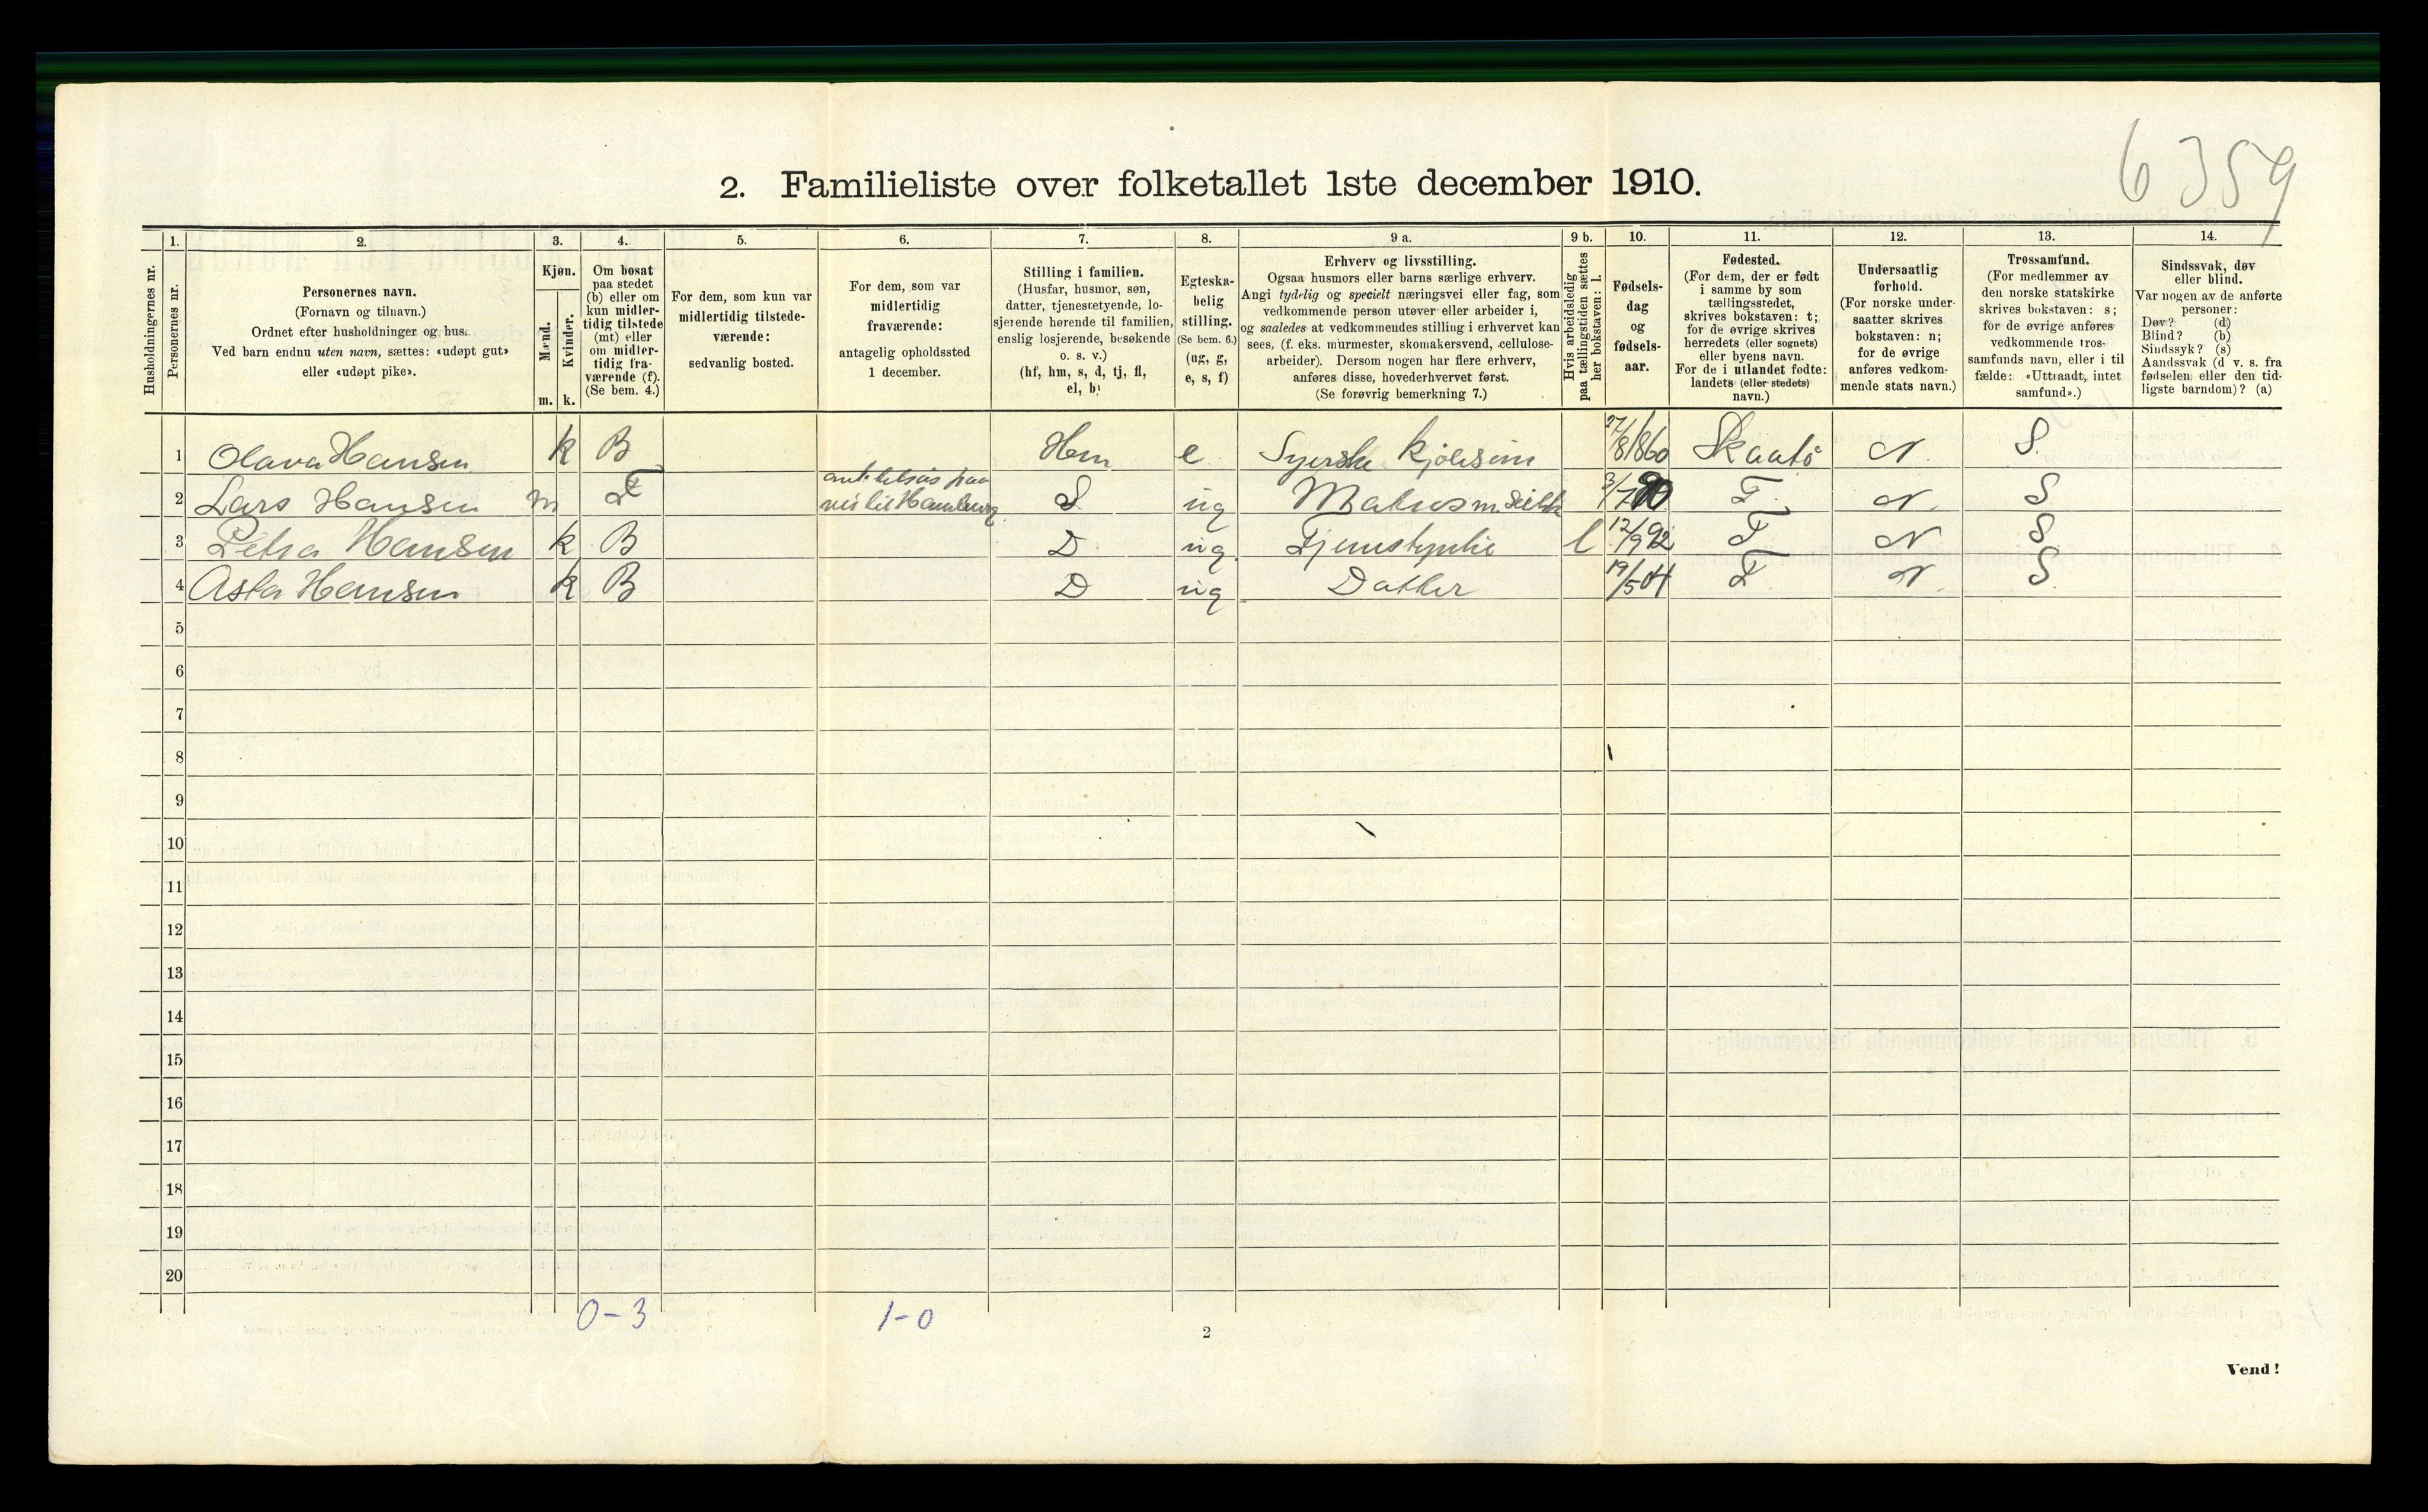 6359
2. Familieliste over folketallet 1ste december 1910.
1. 2. 3. 4. 5. 6. 7. 8. 9 a. 9 b. 10. 11. 12. 13. 14.
Husholdningernes nr.
Personernes nr.
Personernes navn.
(Fornavn og tilnavn.)
Ordnet efter husholdninger og hus.
Ved barn endnu uten navn, sættes: «udøpt gut»
eller «udøpt pike».
Kjøn.
Mænd.
Kvinder.
m. k.
Om bosat
paa stedet
(b) eller om
kun midler-
tidig tilstede
(mt) eller
om midler-
tidig fra-
værende (f).
(Se bem. 4.)
For dem, som kun var
midlertidig tilstede-
værende:
sedvanlig bosted.
For dem, som var
midlertidig
fraværende:
antagelig opholdssted
1 december.
Stilling i familien.
(Husfar, husmor, søn,
datter, tjenestetyende, lo-
sjerende hørende til familien,
enslig losjerende, besøkende
o. s. v.)
(hf, hm, s, d, tj, fl,
el, b)
Egteska-
belig
stilling.
(Se bem. 6.)
(ug, g,
e, s, f)
Erhverv og livsstilling.
Ogsaa husmors eller barns særlige erhverv.
Angi tydelig og specielt næringsvei eller fag, som
vedkommende person utøver eller arbeider i,
og saaledes at vedkommendes stilling i erhvervet kan
sees, (f. eks. murmester, skomakersvend, cellulose-
arbeider). Dersom nogen har flere erhverv,
anføres disse, hovederhvervet først.
(Se forøvrig bemerkning 7.)
Hvis arbeidsledig
paa tællingstiden sættes
her bokstaven: l.
Fødsels-
dag
og
fødsels-
aar.
Fødested.
(For dem, der er født
i samme by som
tællingsstedet,
skrives bokstaven: t;
for de øvrige skrives
herredets (eller sognets)
eller byens navn.
For de i utlandet fødte:
landets (eller stedets)
navn.)
Undersaatlig
forhold.
(For norske under-
saatter skrives
bokstaven: n;
for de øvrige
anføres vedkom-
mende stats navn.)
Trossamfund.
(For medlemmer av
den norske statskirke
skrives bokstaven: s;
for de øvrige anføres
vedkommende tros-
samfunds navn, eller i til
fælde: «Uttraadt, intet
samfund».)
Sindssvak, døv
eller blind.
Var nogen av de anførte
personer:
Døv? (d)
Blind? (b)
Sindssyk? (s)
Aandssvak (d v. s. fra
fødselen eller den tid-
ligste barndom)? (a)
1 Olava Hansen k B Hm e Syerske kjolesöm 27/8 1860 Skaatö N. S.
2 Lars Hansen m F S ug 3/7 90 T. N. S
3 Petra Hansen k B D ug. Tjenestepike l 12/9 92 T N S
4 Asta Hansen k B D ug Datter 19/5 04 T N. S.
5
6
7
8
9
10
11
12
13
14
15
16
17
18
19
20
0-3 1-0
2
Vend!